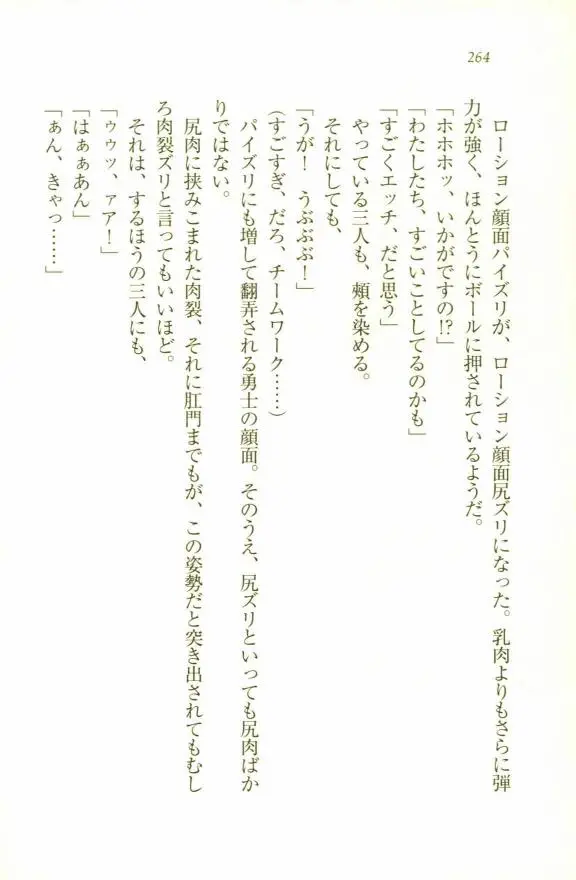 264
ローション顔面パイズリが、ローション顔面尻ズリになった。乳肉よりもさらに弾
力が強く、ほんとうにボールに押されているようだ。
「ホホホッ、いかがですの!?」
「わたしたち、すごいことしてるのかも」
「すごくエッチ、だと思う」
やっている三人も、頰を染める。
それにしても、
「うが！　うぶぶぶ！」
(すごすぎ、だろ、チームワーク……)
パイズリにも増して翻弄される勇士の顔面。そのうえ、尻ズリといっても尻肉ばか
りではない。
尻肉に挟みこまれた肉裂、それに肛門までもが、この姿勢だと突き出されてもむし
ろ肉裂ズリと言ってもいいほど。
それは、するほうの三人にも、
「ゥゥッ、ァア！」
「はぁぁあん」
「ぁん、きゃっ……」